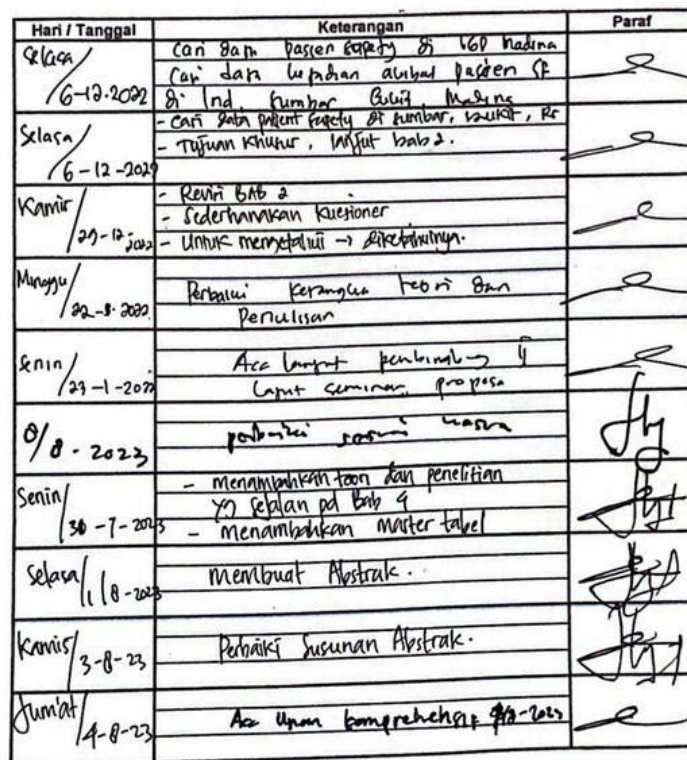 Hari / Tanggal Keterangan Paraf
Selasa/
6-12-2022
cari data pasien safety di
Cari data akibat pasien
di Ind, sumbar
Selasa/
6-12-202
- cari data patient safety di sumbar, RS
- Tujuan khusus, lanjut bab 2.
Kamis/
29-12-2022
- Revisi BAB 2
- Sederhanakan Kuesioner
- Untuk mengetahui → diketahuinya.
Minggu/
2022
Perbaiki kerangka teori dan
Penulisan
Senin/
23-1-202
Acc lanjut pembimbing II
Lanjut seminar proposa
8 - 2023
perbaiki sesuai
Senin/
-7-2023
- menambahkan teori dan penelitian
yg sejalan pd Bab 4
- menambahkan master tabel
Selasa/
1/8-202
membuat Abstrak.
Kamis/
3-8-23
Perbaiki Susunan Abstrak.
Jum'at/
4-8-23
Acc Ujian komprehensif -2023